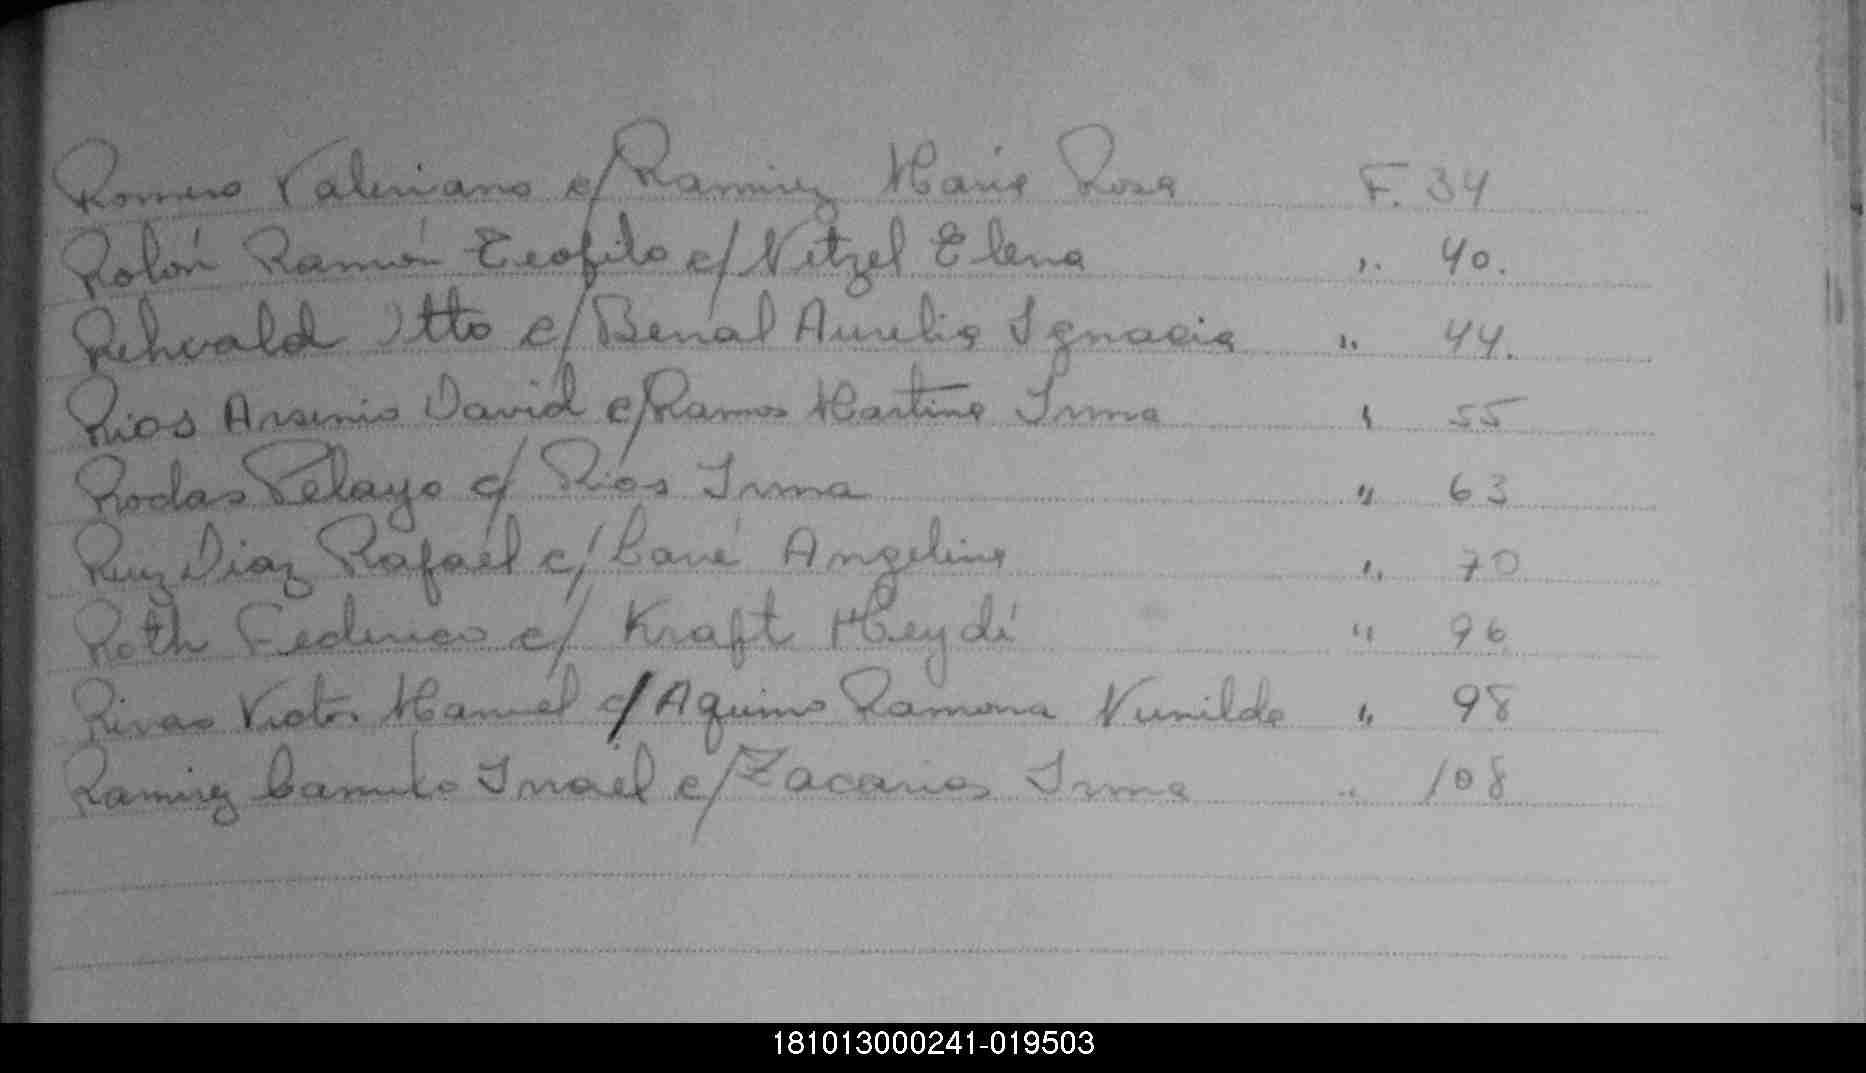 Romero Valeriano c/ Ramirez Maria Rosa F. 34
Rolón Ramón Teofilo c/ Nitzel Elena ,, 40.
Rehvald Otto c/ Benal Aurelia Ignacia ,, 44.
Rios Arsenio David c/ Ramos Martina Irma " 55
Rodas Pelayo c/ Rios Irma " 63
Ruiz Diaz Rafaél c/ Cané Angelina ,, 70
Roth Federico c/ Kraft Heydi " 96
Rivas Victor Manuel c/ Aquino Ramona Nunilda " 98
Ramirez Camilo Israél c/ Zacarias Irma " 108
181013000241-019503